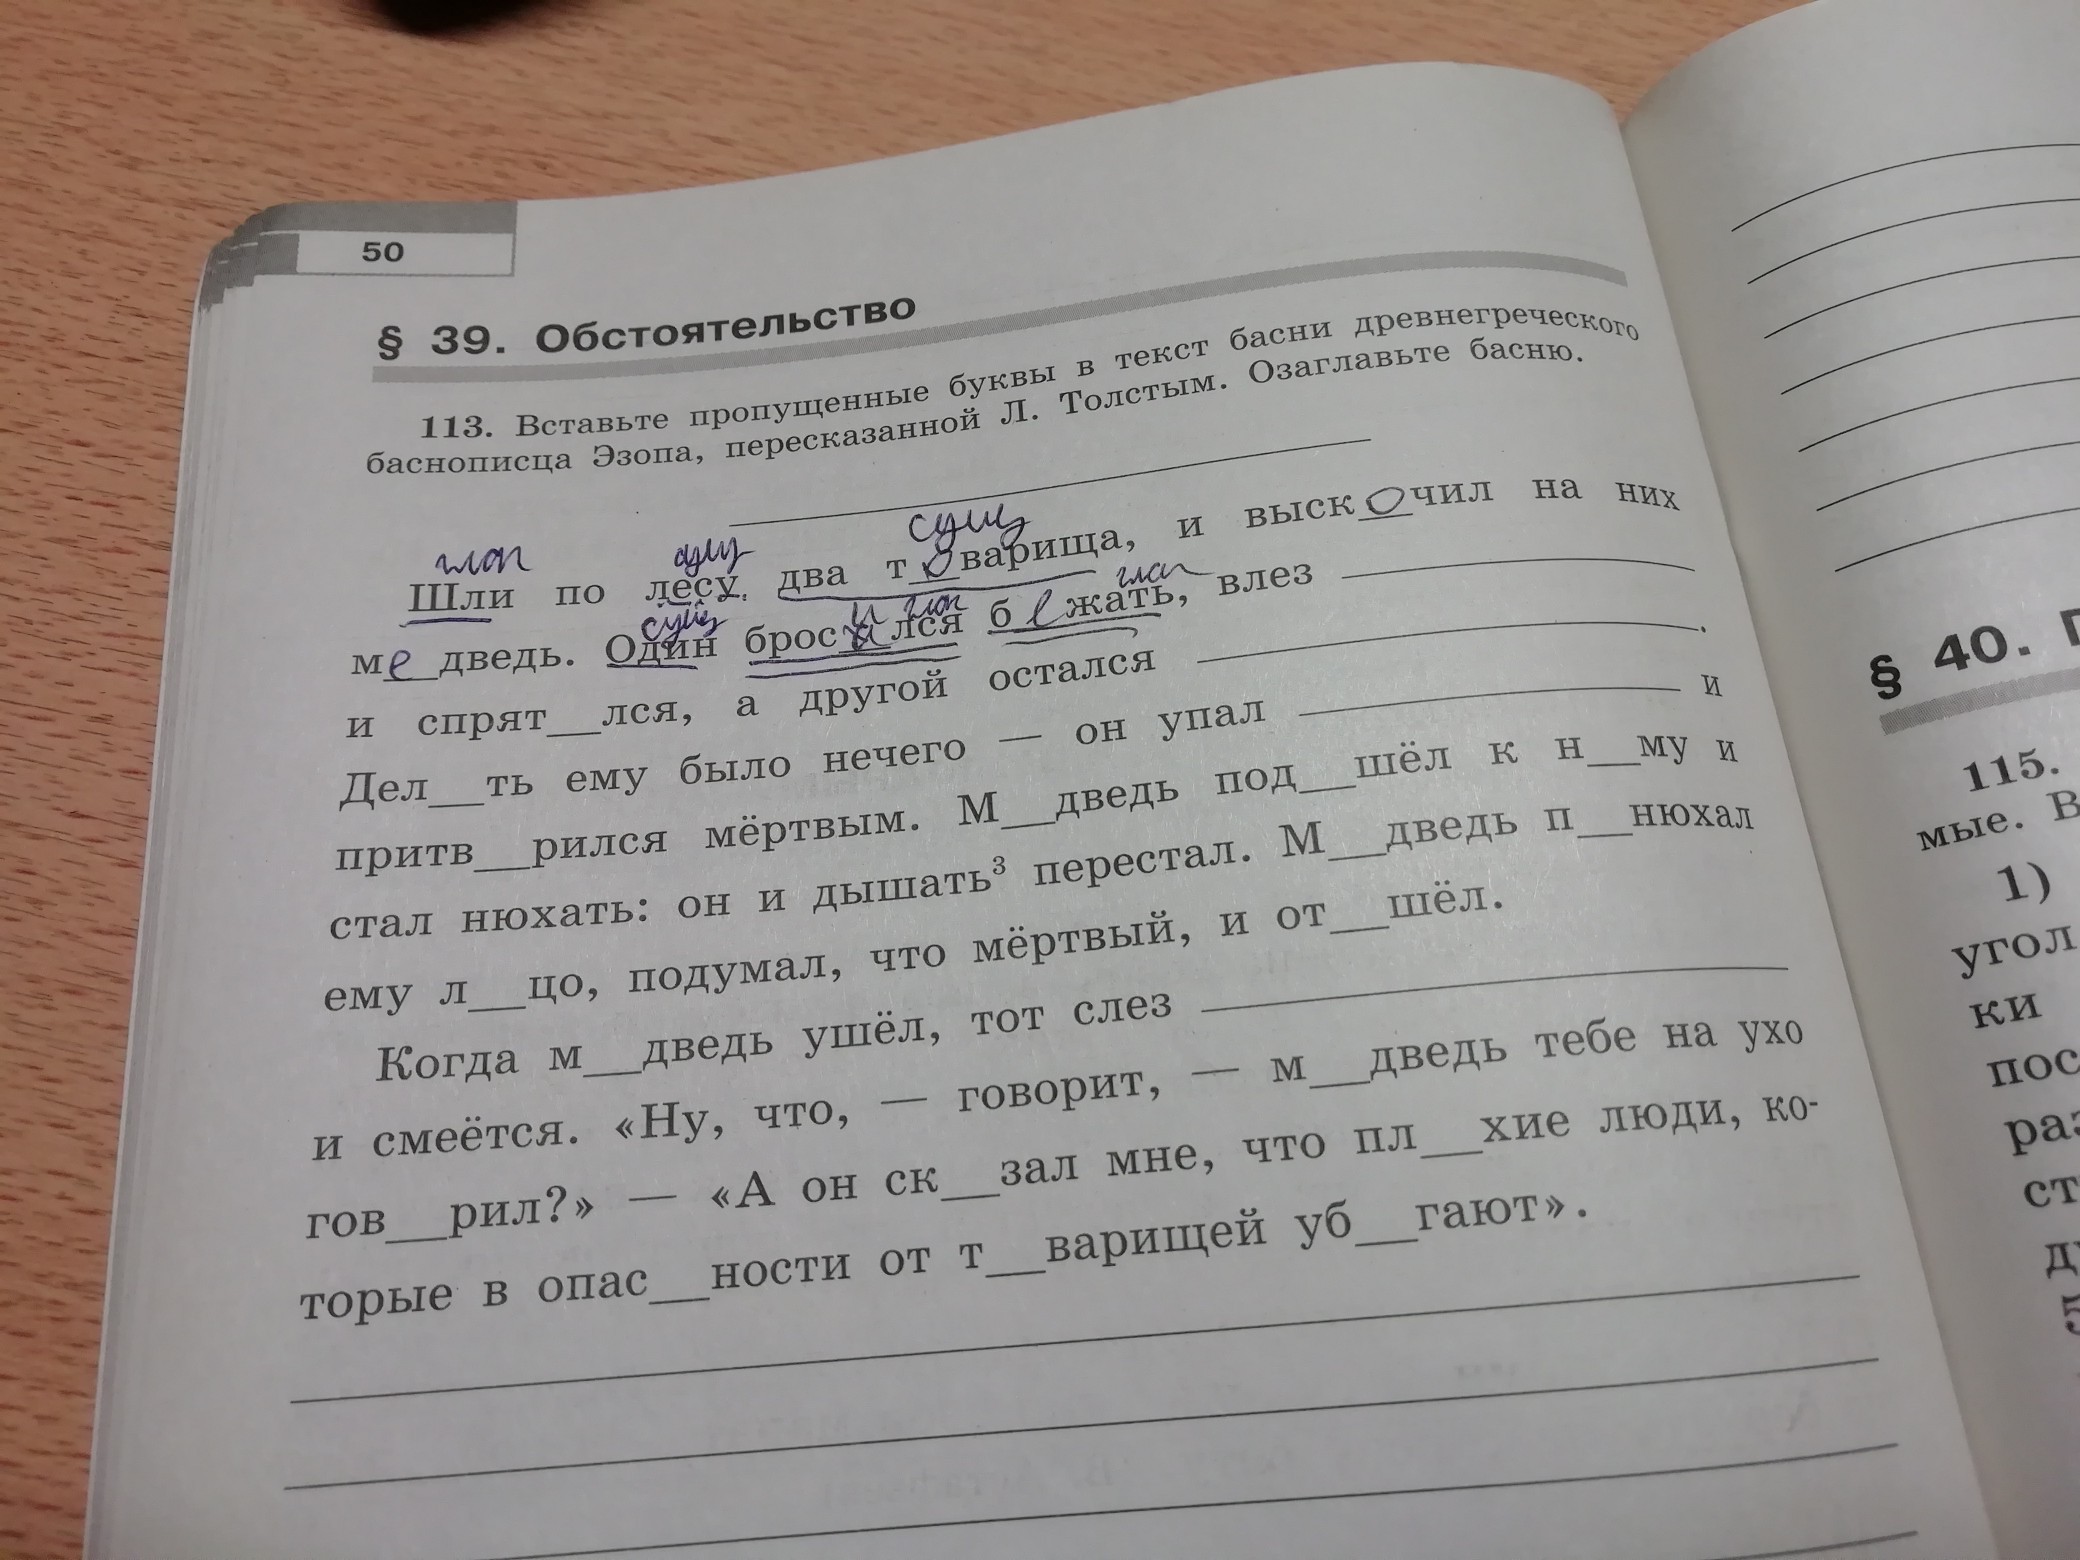 50
§ 39. Обстоятельство
113. Вставьте пропущенные буквы в текст басни древнегреческого
баснописца Эзопа, пересказанной Л. Толстым. Озаглавьте басню.
глаг сущ сущ
Шли по лесу два товарища, и выскочил на них
сущ и глаг глаг
медведь. Один бросился бежать, влез ____
и спрят__лся, а другой остался ____.
Дел__ть ему было нечего — он упал ____ и
притв__рился мёртвым. М__дведь под__шёл к н__му и
стал нюхать: он и дышать³ перестал. М__дведь п__нюхал
ему л__цо, подумал, что мёртвый, и от__шёл.
Когда м__дведь ушёл, тот слез ____
и смеётся. «Ну, что, — говорит, — м__дведь тебе на ухо
гов__рил?» — «А он ск__зал мне, что пл__хие люди, ко-
торые в опас__ности от т__варищей уб__гают».
§ 40. П
115.
мые. В
1)
угол
ки
пос
раз
ст
д
5